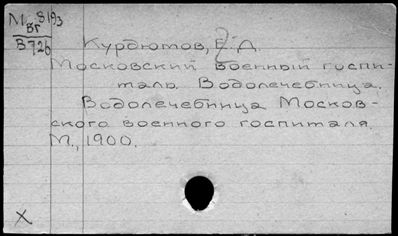 М 8193
вг
В726
Курдютов, Е.Д.
Московский военный госпи-
таль. Водолечебница.
Водолечебница Москов-
ского военного госпиталя.
М., 1900.
X